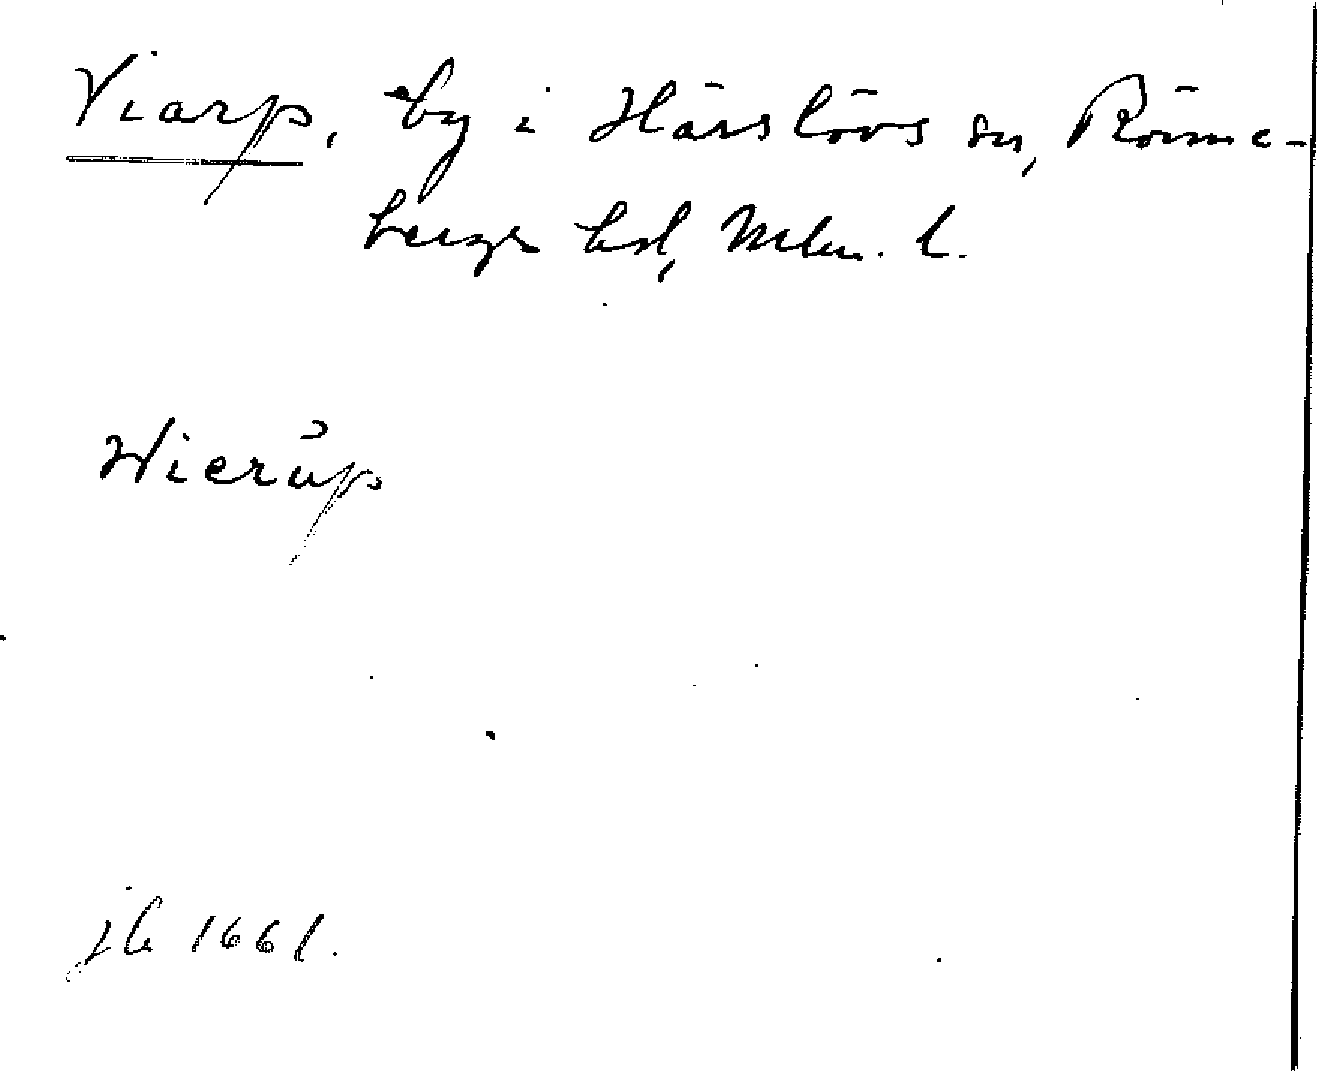 Viarp, by i Härslövs sn, Rönne-
bergs hd, Mlm. l.
Wierŭp
jb 1661.